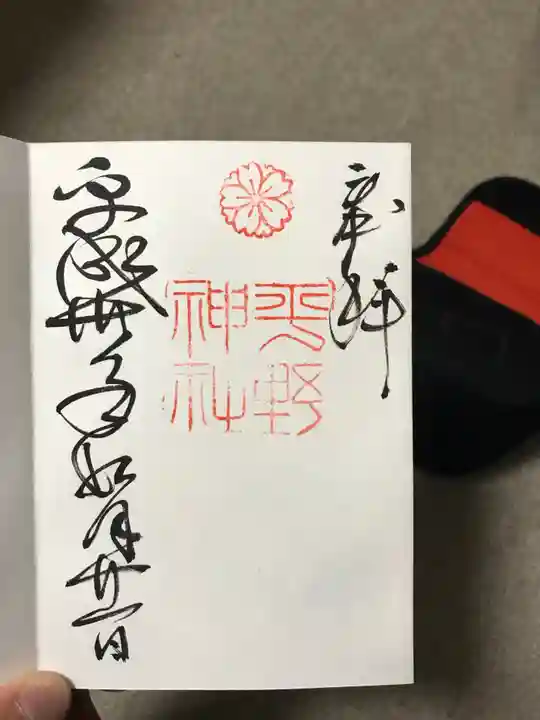 奉拝
平野
神社
平成卅年如月廿一日